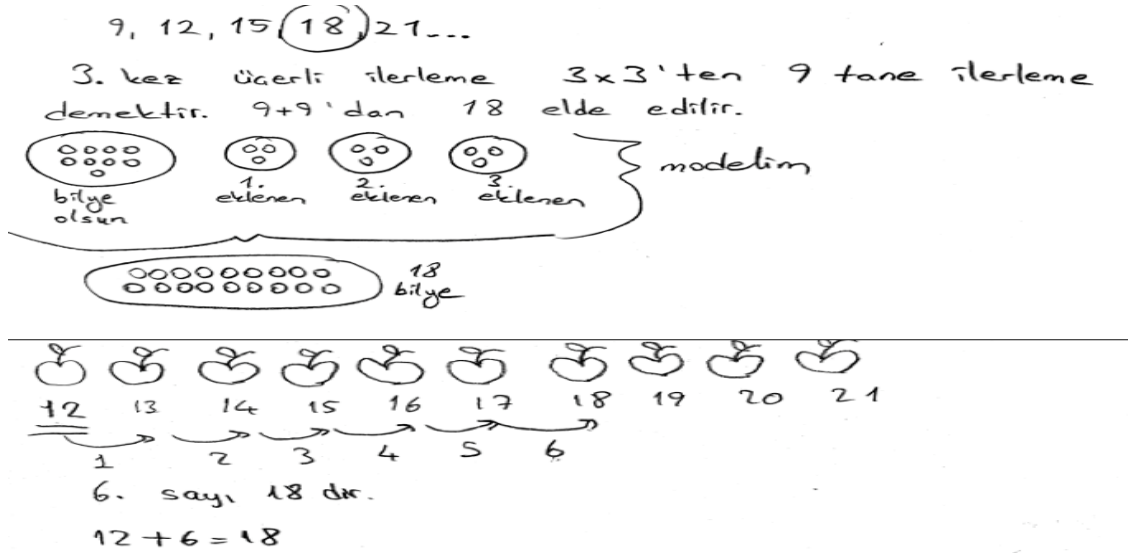 9, 12, 15, 18, 21...
3. kez üçerli ilerleme 3x3'ten 9 tane ilerleme
demektir. 9+9'dan 18 elde edilir.
modelim
1. 2. 3.
bilye eklenen eklenen eklenen
olsun
18
bilye
12 13 14 15 16 17 18 19 20 21
1 2 3 4 5 6
6. sayı 18 dir.
12+6=18